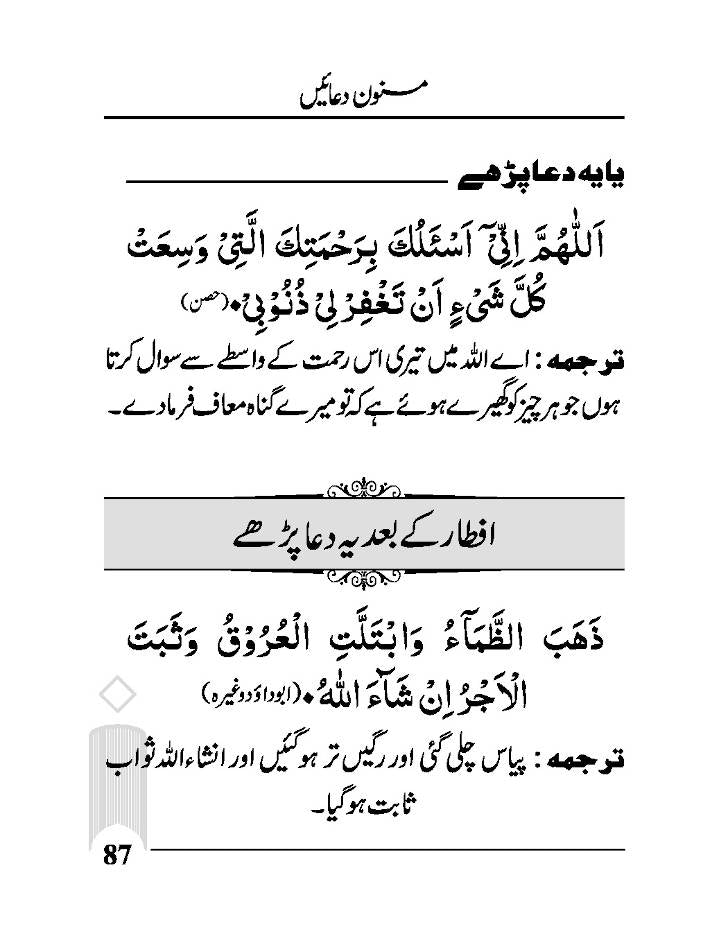 مسنون دعائیں
یا یہ دعا پڑھے
اَللّٰهُمَّ اِنِّیْٓ اَسْئَلُكَ بِرَحْمَتِكَ الَّتِیْ وَسِعَتْ
كُلَّ شَیْءٍ اَنْ تَغْفِرْ لِیْ ذُنُوْبِیْ۰ (حصن)
ترجمہ : اے اللہ میں تیری اس رحمت کے واسطے سے سوال کرتا
ہوں جو ہر چیز کو گھیرے ہوئے ہے کہ تو میرے گناہ معاف فرمادے۔
افطار کے بعد یہ دعا پڑھے
ذَهَبَ الظَّمَآءُ وَابْتَلَّتِ الْعُرُوْقُ وَثَبَتَ
الْاَجْرُ اِنْ شَآءَ اللّٰهُ۰ (ابوداؤد وغیرہ)
ترجمہ : پیاس چلی گئی اور رگیں تر ہوگئیں اور انشاء اللہ ثواب
ثابت ہوگیا۔
87